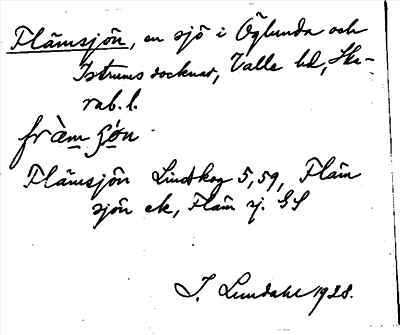 Flämsjön, en sjö i Öglunda och
Istrums socknar, Valle hd, Ska-
rab. l.
fràm şón
Flämsjön Lindskog 5,59, Fläm
sjön ek, Fläm sj. GS
I. Lundahl 1928.